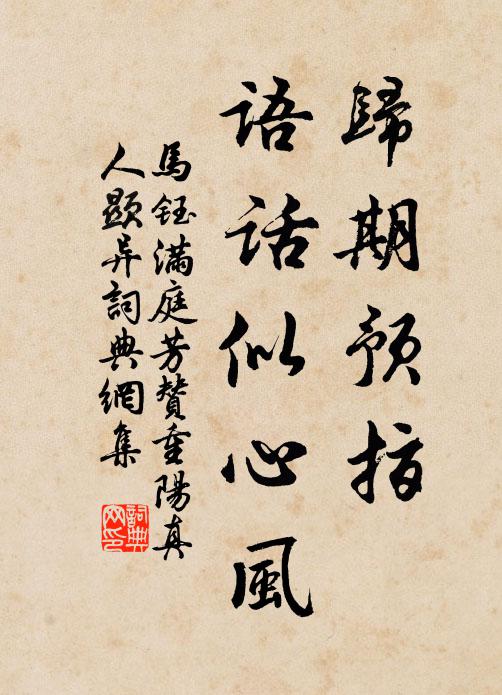 歸期預指
語話似心風
馬鈺滿庭芳贊重陽真
人顯异詞典網集
詞典網印